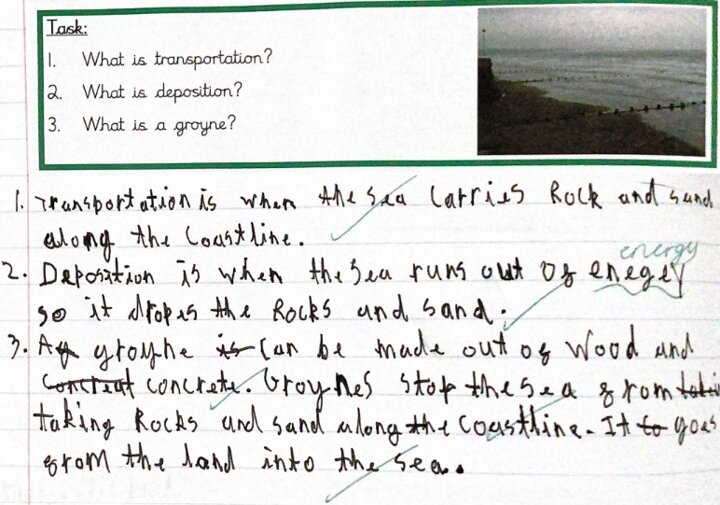 Task:
1. What is transportation?
2. What is deposition?
3. What is a groyne?
1. Transportation is when the sea carries Rock and sand
along the Coastline.
energy
2. Deposition is when the sea runs out of enegey
so it dropes the Rocks and sand.
3. A groyhe is can be made out of wood and
Concreat concrete. Groynes stop the sea from takein
taking Rocks and sand along the coastline. It to goes
from the land into the sea.